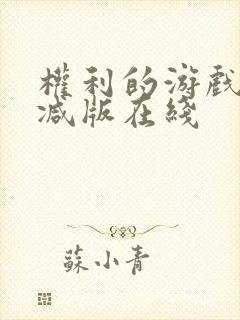 權利的游戲
减版在綫
蘇小青